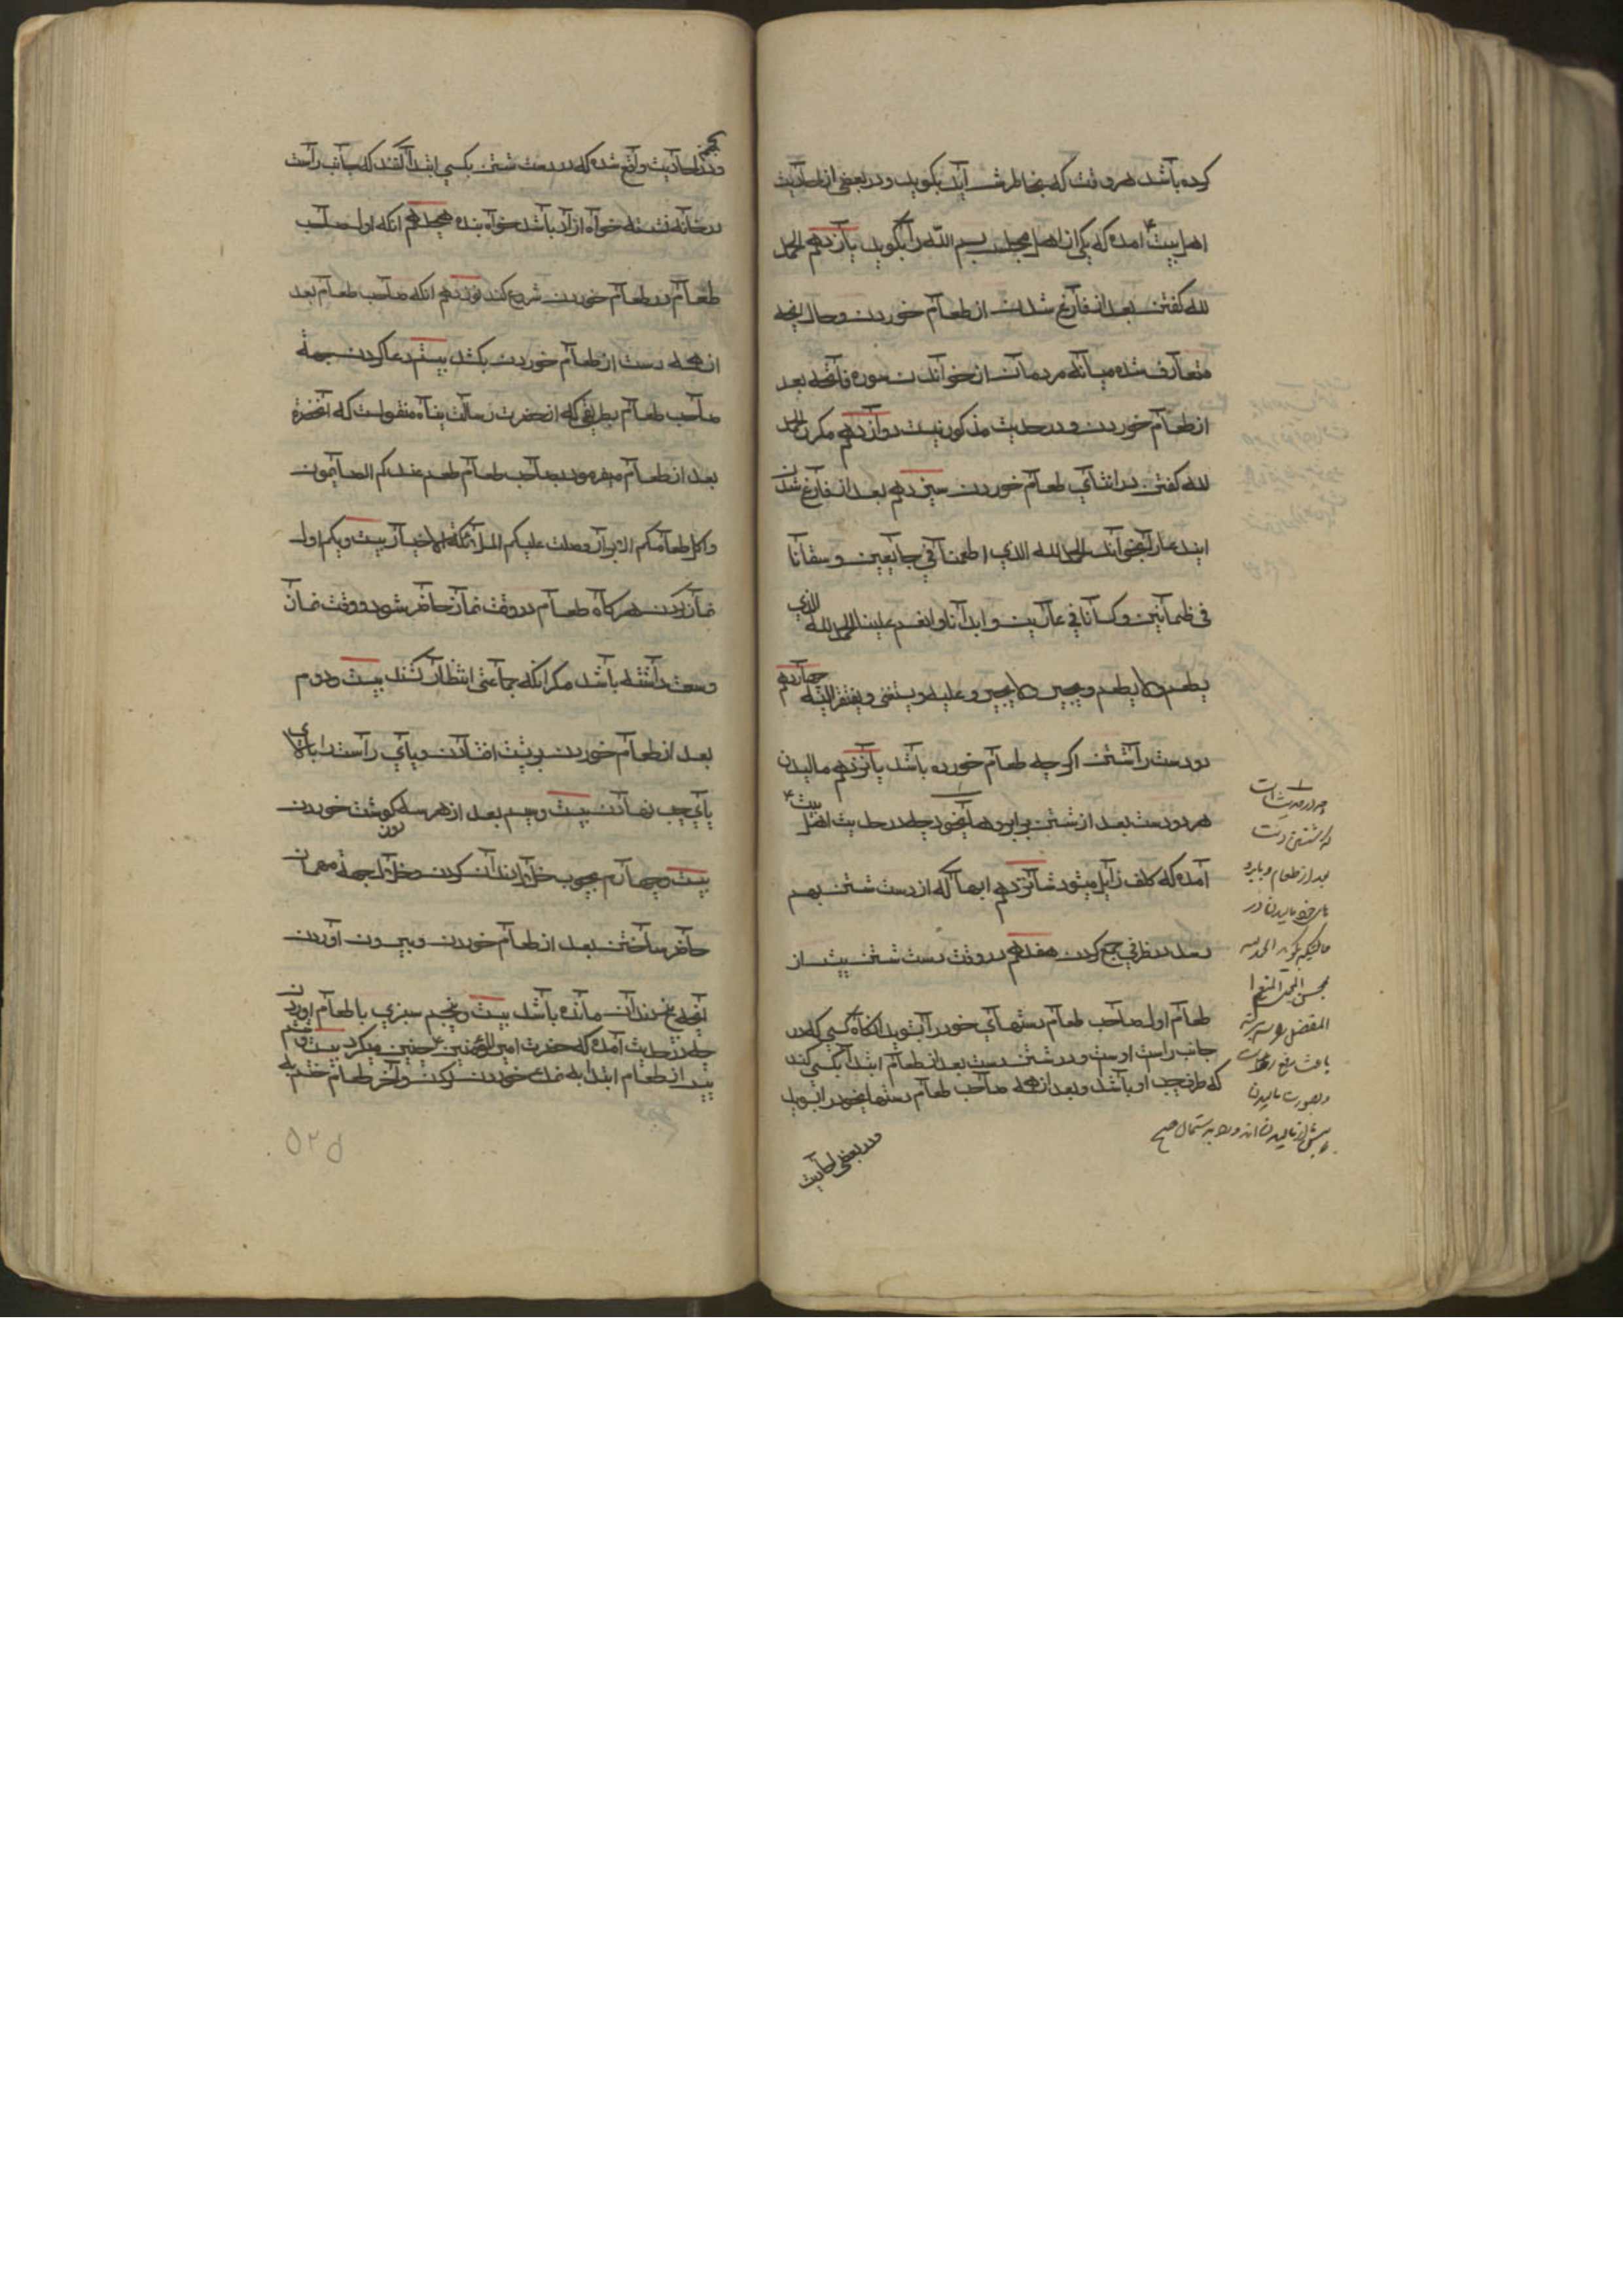 کرده باشد هر وقت که بخاطرش آید بگوید و در بعضی از احادیث
اهل بیت ع آمده که یکی از اهل مجلس بسم الله را بگوید یازدهم الحمد
لله گفتن بعد از فارغ شدن از طعام خوردن و حال آنچه
متعارف شده میانه مردمان از خواندن سوره فاتحه بعد
از طعام خوردن و در حدیث مذکور نیست دوازدهم مکرر الحمد
لله گفتن در اثنای طعام خوردن سیزدهم بعد از فارغ شدن
ایندعا را بخواند الحمد لله الذي اطعمنا في جایعین و سقانا
في ظمآنین و کسانا في عارین و انعم علینا الحمد لله الذي
یطعم ولا یطعم و یجیر ولا یجیر و علیه و یستغنی و یفتقر الیه چهاردهم
دو دست را شستن اگر چه طعام خورده باشد پانزدهم مالیدن
هر دو دست بعد از شستن بر ابروهای خود چه در حدیث اهل بیت ع
آمده که کلف زایل میشود شانزدهم ابها که از دست شستن بهم
رسد در ظرفي جمع کردن هفدهم در وقت دست شستن پیش از
طعام اول صاحب طعام دستهای خود را بشوید انگاه کسی که در
جانب راست اوست و در شستن دست بعد از طعام ابتدا بکسی کند
که طرف چپ او باشد و بعد از همه صاحب طعام دستهای خود را بشوید
و در بعضی احادیث
چه در حدیث است
که شستن دست
بعد از طعام و بابرو
مالیدن در
حالتیکه بگوید الحمد لله
محسن المجمل المنعم
المفضل
باعث
و بصورت مالیدن
پیش از مالیدن
و در بعضی احادیث واقع شده که در دست شستن بکسی ابتدا کنند که جانب راست
در خانه نشسته خواه آزاد باشد خواه بنده هجدهم آنکه اول صاحب
طعام در طعام خوردن شروع کند نوزدهم آنکه صاحب طعام بعد
از همه دست از طعام خوردن بکشد بیستم دعا کردن بجهة
صاحب طعام بطریقی که از حضرت رسالت پناه منقولست که آنحضرة
بعد از طعام میفرمود بصاحب طعام طعم عندکم الصایمون
و اکل طعامکم الابرار و صلت علیکم الملائکة الاخیار بیست و یکم اول
نماز کردن هرگاه طعام در وقت نماز حاضر شود و وقت نماز
وسعت داشته باشد مگر آنکه جماعتی انتظار کشند بیست و دوم
بعد از طعام خوردن بر پشت افتادن و پای راست را بالای
پای چپ نهادن بیست و سیم بعد از هر سه روز گوشت خوردن
بیست و چهارم بچوب خلال دندان کردن و خلال بجهة مهمان
حاضر ساختن بعد از طعام خوردن و بیرون آوردن
آنچه در دندان مانده باشد بیست و پنجم سبزي با طعام آوردن
چه در حدیث آمده که حضرت امیر المؤمنین ع چنین میکرد بیست و ششم
پیش از طعام ابتدا به نمک خوردن کردن و آخر طعام ختم به
۵۲۵